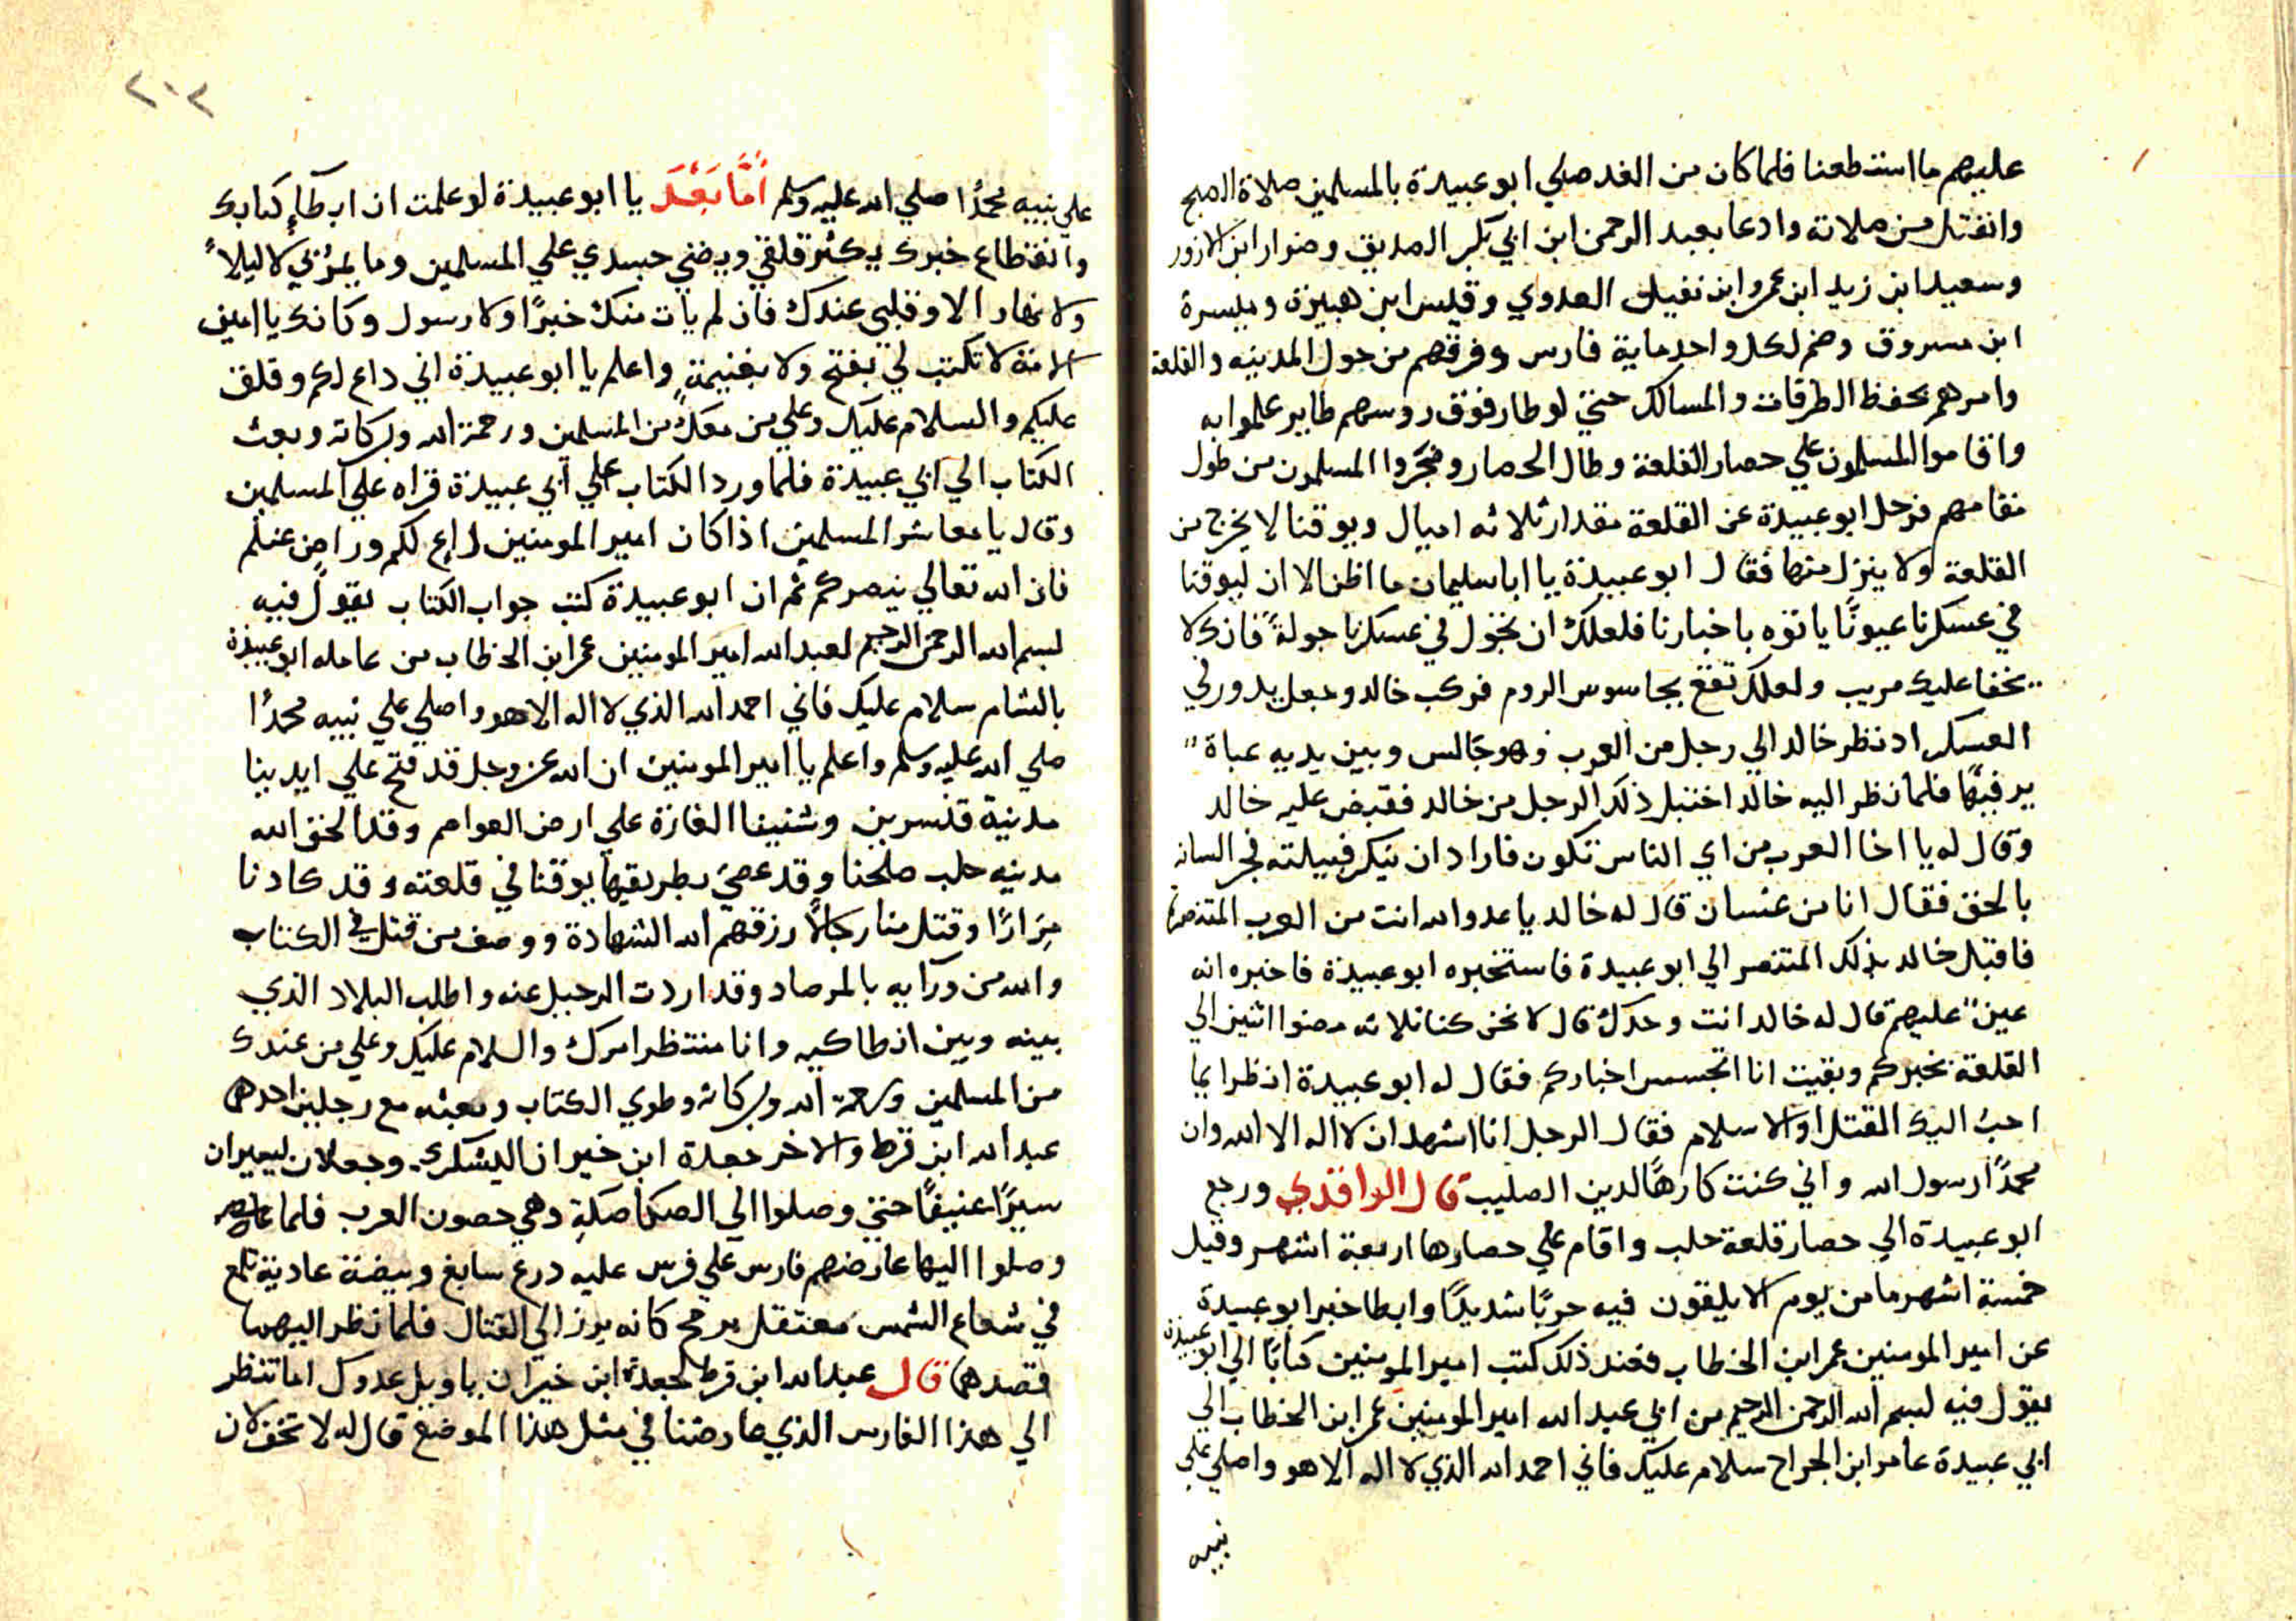 عليهم ما استطعنا فلما كان من الغد صلي ابو عبيدة بالمسلمين صلاة الصبح
وانفتل من صلاته وادعا بعبد الرحمن ابن ابي بكر الصديق وضرار ابن الازور
وسعيد ابن زيد ابن عمرو ابن نفيل العدوي وقيس ابن هبيرة وميسرة
ابن مسروق وضم لكل واحد ماية فارس وفرقهم من حول المدينه والقلعة
وامرهم بحفظ الطرقات والمسالك حتي لو طار فوق روسهم طاير علموا به
واقاموا المسلمون علي حصار القلعة وطال الحصار وضجروا المسلمون من طول
مقامهم فرحل ابو عبيدة عن القلعة مقدار ثلاثه اميال ويوقنا لا يخرج من
القلعة ولا ينزل منها فقال ابو عبيدة يا ابا سليمان ما اظن الا ان ليوقنا
في عسكرنا عيونًا ياتوه باخبارنا فلعلك ان تجول في عسكرنا جولةً فانك لا
يخفا عليك مريب ولعلك تقع بجاسوس الروم فركب خالد وجعل يدور في
العسكر اذ نظر خالد الي رجل من العرب وهو جالس وبين يديه عباة
يرفيها فلما نظر اليه خالد اختبل ذلك الرجل من خالد فقبض عليه خالد
وقال له يا اخا العرب من اي الناس تكون فاراد ان ينكر قبيلته فجر السانه
بالحق فقال انا من غسان قال له خالد يا عدو الله انت من العرب المتنصرة
فاقبل خالد بذلك المتنصر الي ابو عبيدة فاستخبره ابو عبيدة فاخبره انه
عين عليهم قال له خالد انت وحدك قال لا نحن كنا ثلاثه مضوا اثنين الي
القلعة بخبركم وبقيت انا اتجسس اخباركم فقال له ابو عبيدة انظر ايما
احب اليك القتل او الاسلام فقال الرجل انا اشهد ان لا اله الا الله وان
محمدًا رسول الله واني كنت كارهًا لدين الصليب قال الواقدي ورجع
ابو عبيدة الي حصار قلعة حلب واقام علي حصارها اربعة اشهر وقيل
خمسة اشهر ما من يوم الا يلقون فيه حربًا شديدًا وابطا خبر ابو عبيدة
عن امير المومنين عمر ابن الخطاب فعند ذلك كتب امير المومنين كتابًا الي ابو عبيدة
يقول فيه لبسم الله الرحمن الرحيم من ابي عبد الله امير المومنين عمر ابن الخطاب الي
ابي عبيدة عامر ابن الجراح سلام عليك فاني احمد الله الذي لا اله الا هو واصلي علي
نبيه
٢٠٢
علي نبيه محمدًا صلي الله عليه وسلم امَّا بَعْد يا ابو عبيدة لو علمت ان ابطاء كتابك
وانقطاع خبرك يكثر قلقي ويضني جسدي علي المسلمين وما يمر بي لا ليلاً
ولا نهار الا وقلبي عندك فان لم يات منك خبرًا ولا رسول وكانك يا امين
الامة لا تكتب لي بفتح ولا بغنيمةٍ واعلم يا ابو عبيدة اني داع لكم وقلق
عليكم والسلام عليك وعلي من معك من المسلمين ورحمة الله وبركاته وبعث
الكتاب الي ابي عبيدة فلما ورد الكتاب علي ابي عبيدة قراه علي المسلمين
وقال يا معاشر المسلمين اذا كان امير المومنين داع لكم وراضٍ عنكم
فان الله تعالي ينصركم ثم ان ابو عبيدة كتب جواب الكتاب يقول فيه
لبسم الله الرحمن الرحيم لعبد الله امير المومنين عمر ابن الخطاب من عامله ابو عبيدة
بالشام سلام عليك فاني احمد الله الذي لا اله الا هو واصلي علي نبيه محمدًا
صلي الله عليه وسلم واعلم يا امير المومنين ان الله عز وجل قد فتح علي ايدينا
مدنية قنسرين وشنينا الغارة علي ارض العواصم وقد الحق الله
مدنيه حلب صلحنا وقد عصي بطريقها يوقنا في قلعته وقد كادنا
مِرَارًا وقتل منا رجالاً رزقهم الله الشهادة ووصف من قتل في الكتاب
والله من ورآيه بالمرصاد وقد اردت الرحيل عنه واطلب البلاد الذي
بينه وبين انطاكيه وانا منتظر امرك والسلام عليك وعلي من عندك
من المسلمين ورحمة الله وبركاته وطوي الكتاب وبعثه مع رجلين احدهما
عبد الله ابن قرط والاخر جعدة ابن خيران اليشكري وجعلان ليسيران
سيرًا عنيفًا حتي وصلوا الي الصكاصكة وهي حصون العرب فلما
وصلوا اليها عارضهم فارس علي فرس عليه درع سابغ وبيضة عادية تلمع
في شعاع الشمس معتقل برمح كانه برز الي القتال فلما نظر اليهما
قصدهما قال عبد الله ابن قرط لجعدة ابن خيران ياويل عدوك اما تنظر
الي هذا الفارس الذي عارضنا في مثل هذا الموضع قال له لا تخف لان